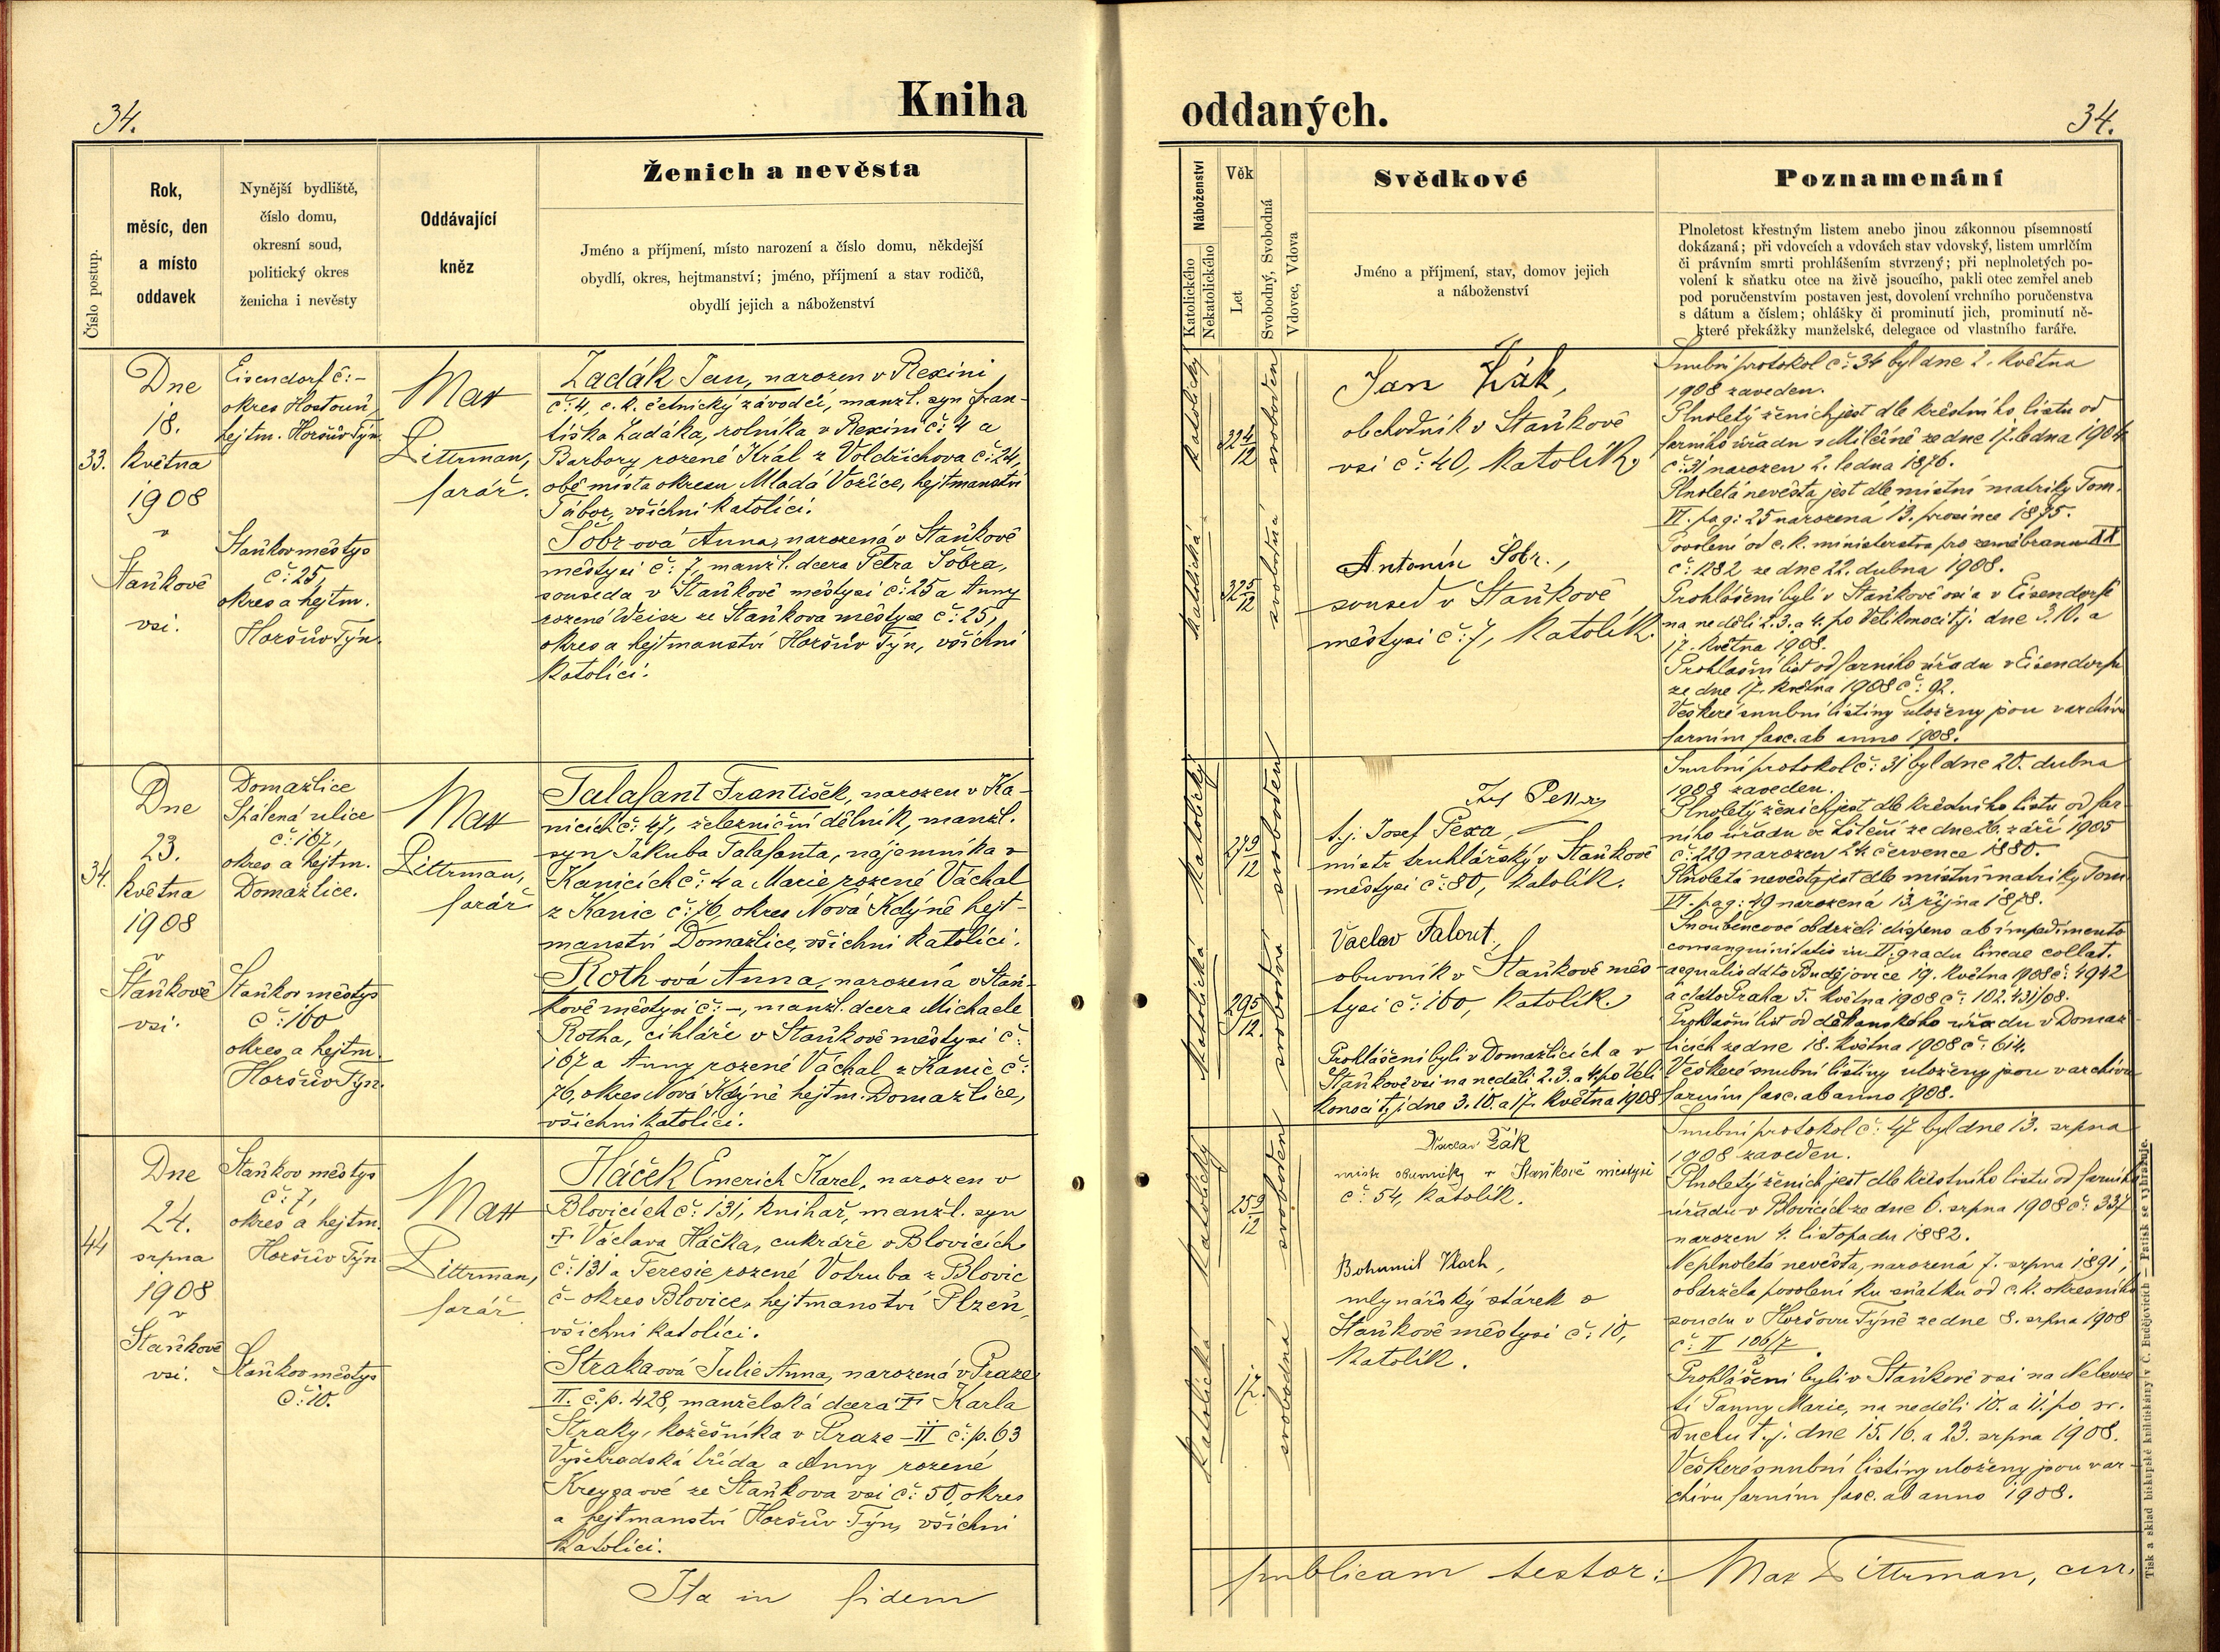 34.
Kniha
Číslo postup.
Rok,
měsíc, den
a místo
oddavek
Nynější bydliště,
číslo domu,
okresní soud,
politický okres
ženicha i nevěsty
Oddávající
kněz
Ženich a nevěsta
Jméno a příjmení, místo narození a číslo domu, někdejší
obydlí, okres, hejtmanství; jméno, příjmení a stav rodičů,
obydlí jejich a náboženství
33.
Dne
18.
května
1908
v
Staňkově
vsi.
Eisendorf č:-
okres Hostouň,
hejtm. Horšův Týn.
Staňkov městys
č: 25,
okres a hejtm.
Horšův Týn.
Max
Dittrman,
farář.
Zadák Jan, narozen v Rexini
č: 4, c. k. četnický závodčí, manžl. syn Fran-
tiška Zadáka, rolníka v Rexini č: 4 a
Barbory rozené Král z Voldřichova č: 24,
obě místa okresu Mladá Vožice, hejtmanství
Tábor, všichni katolíci.
Šobr-ová Anna, narozená v Staňkově
městysi č: 7, manžl. dcera Petra Šobra,
souseda v Staňkově městysi č: 25 a Anny
rozené Weisz ze Staňkova městyse č: 25,
okres a hejtmanství Horšův Týn, všichni
katolíci.
34.
Dne
23.
května
1908
v
Staňkově
vsi.
Domažlice
Spálená ulice
č: 167,
okres a hejtm.
Domažlice.
Staňkov městys
č: 160
okres a hejtm.
Horšův Týn.
Max
Dittrman,
farář
Talafant František, narozen v Ka-
nicích č: 47, železniční dělník, manžl.
syn Jakuba Talafanta, nájemníka v
Kanicích č: 4 a Marie rozené Váchal
z Kanic č: 76, okres Nová Kdýně hejt-
manství Domažlice, všichni katolíci.
Roth-ová Anna, narozená v Staň-
kově městysi č: -, manžl. dcera Michaela
Rotha, cihláře v Staňkově městysi č:
167 a Anny rozené Váchal z Kanic č:
76, okres Nová Kdýně hejtm. Domažlice,
všichni katolíci.
44
Dne
24.
srpna
1908
v
Staňkově
vsi.
Staňkov městys
č: 7,
okres a hejtm.
Horšův Týn
Staňkov městys
č: 10.
Max
Dittrman,
farář
Háček Emerich Karel, narozen v
Blovicích č: 131, knihař, manžl. syn
† Václava Háčka, cukráře v Blovicích
č: 131 a Teresie rozené Votruba z Blovic
č - okres Blovice, hejtmanství Plzeň,
všichni katolíci.
Straka-ová Julie Anna, narozená v Praze
II. č. p. 428, manželská dcera † Karla
Straky, kožešníka v Praze - II č: p. 63
Vyšehradská třída a Anny rozené
ze Staňkova vsi č: 50, okres
a hejtmanství Horšův Týn, všichni
katolíci.
Ita in fidem
oddaných.
34.
Náboženství
Katolického
Nekatolického
Věk
Let
Svobodný, Svobodná
Vdovec, Vdova
Svědkové
Jméno a příjmení, stav, domov jejich
a náboženství
Poznamenání
Plnoletost křestným listem anebo jinou zákonnou písemností
dokázaná; při vdovcích a vdovách stav vdovský, listem umrlčím
či právním smrti prohlášením stvrzený; při neplnoletých po-
volení k sňatku otce na živě jsoucího, pakli otec zemřel aneb
pod poručenstvím postaven jest, dovolení vrchního poručenstva
s dátum a číslem; ohlášky či prominutí jich, prominutí ně-
které překážky manželské, delegace od vlastního faráře.
katolický
32 4/12
svoboden
katolická
32 5/12
svobodná
Jan Žák,
obchodník v Staňkově
vsi č: 40, katolík.
Antonín Šobr.,
soused v Staňkově
městysi č: 7, katolík.
Snubní protokol č: 34 byl dne 2. května
1908 zaveden.
Plnoletý ženich jest dle křestního listu od
farního úřadu v Milčíně ze dne 17. ledna 1904
č: 31 narozen 2. ledna 1876.
Plnoletá nevěsta jest dle místní matriky Tom.
VI. pag: 25 narozená 13. prosince 1875.
Povolení od c. k. ministerstva pro zeměbranu XX
č: 1282 ze dne 22. dubna 1908.
Prohlášeni byli v Staňkově vsi a v Eisendorfě
na neděli 2. 3. a 4. po Velikonoci t.j. dne 3. 10. a
17. května 1908.
Prohlašní list od farního úřadu v Eisendorfu
ze dne 17. května 1908 č: 92.
Veškeré snubní listiny uloženy jsou v archivu
farním fasc. ab anno 1908.
katolický
27 9/12
svoboden
katolická
29 5/12.
svobodná
t. j. Josef Pexa,
mistr truhlářský v Staňkově
městysi č: 80, katolík.
Václav Falout,
obuvník v Staňkově měs-
tysi č: 160, katolík.
Prohlášeni byli v Domažlicích a v
Staňkově vsi na neděli 2. 3. a 4. po Veli-
konoci t. j dne 3. 10. a 17. května 1908
Snubní protokol č: 31 byl dne 20. dubna
1908 zaveden.
Plnoletý ženich jest dle křestního listu od far-
ního úřadu ve Lštění ze dne 26. září 1905
č: 229 narozen 24. července 1880.
Plnoletá nevěsta jest dle místní matriky Tom
VI. pag: 49 narozená 13. října 1878.
Snoubencové obdrželi dispens ab impedimento
consanguinitatis in II. gradu lineae collat.
aequalis ddto Budějovice 19. května 1908 č: 4942
a ddto Praha 5. května 1908 č: 102.431/08.
Prohlašní list od děkanského úřadu v Domaž-
licích ze dne 18. května 1908 č: 614.
Veškeré snubní listiny uloženy jsou v archivu
farním fasc. ab anno 1908.
katolický
25 9/12
svoboden
katolická
17.
svobodná
Václav Žák
mistr obuvnický v Staňkově městysi
č: 54, katolík.
Bohumil Vlach,
mlynářský stárek v
Staňkově městysi č: 10,
katolík.
Snubní protokol č: 47 byl dne 13. srpna
1908 zaveden.
Plnoletý ženich jest dle křestního listu od farního
úřadu v Blovicích ze dne 6. srpna 1908 č: 337
narozen 4. listopadu 1882.
Neplnoletá nevěsta, narozená 7. srpna 1891,
obdržela povolení ku sňatku od c. k. okresního
soudu v Horšovu Týně ze dne 8. srpna 1908
č: II
Prohlášeni byli v Staňkově vsi na Nebevze-
tí Panny Marie, na neděli 10. a 11. po sv.
Duchu t. j. dne 15. 16. a 23. srpna 1908.
Veškeré snubní listiny uloženy jsou v ar-
chivu farním fasc. ab anno 1908.
publicam testor: Max Dittrman, cur.
Tisk a sklad biskupské knihtiskárny v Č. Budějovicích — Patisk se vyhražuje.